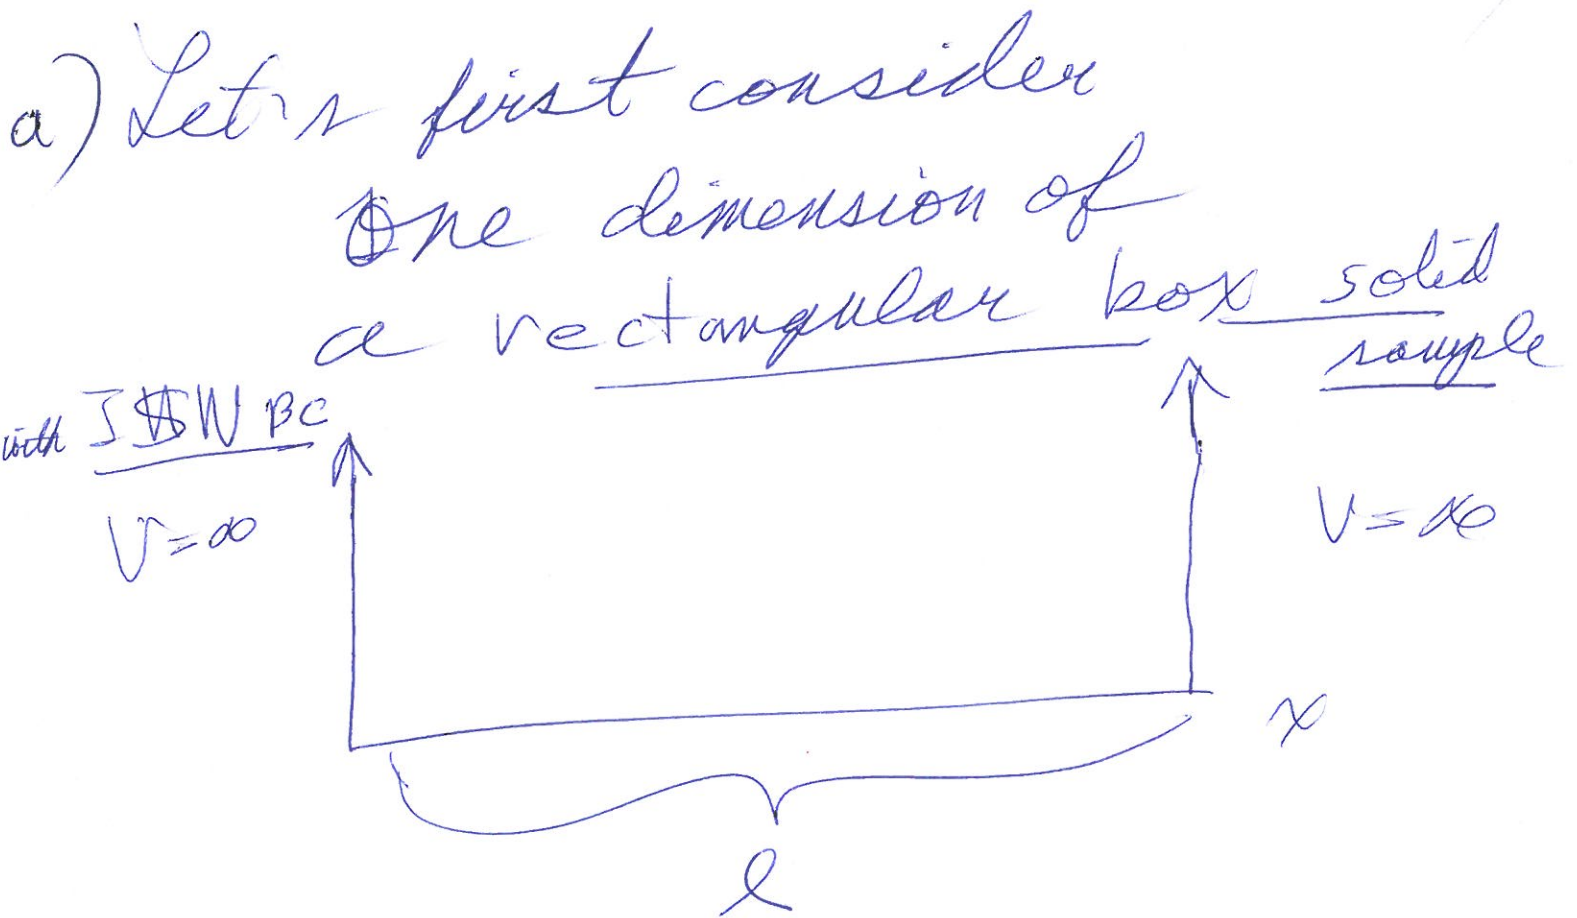 a) Let's first consider
one dimension of
a rectangular box solid
sample
with ISW BC
V=∞
V=∞
x
l